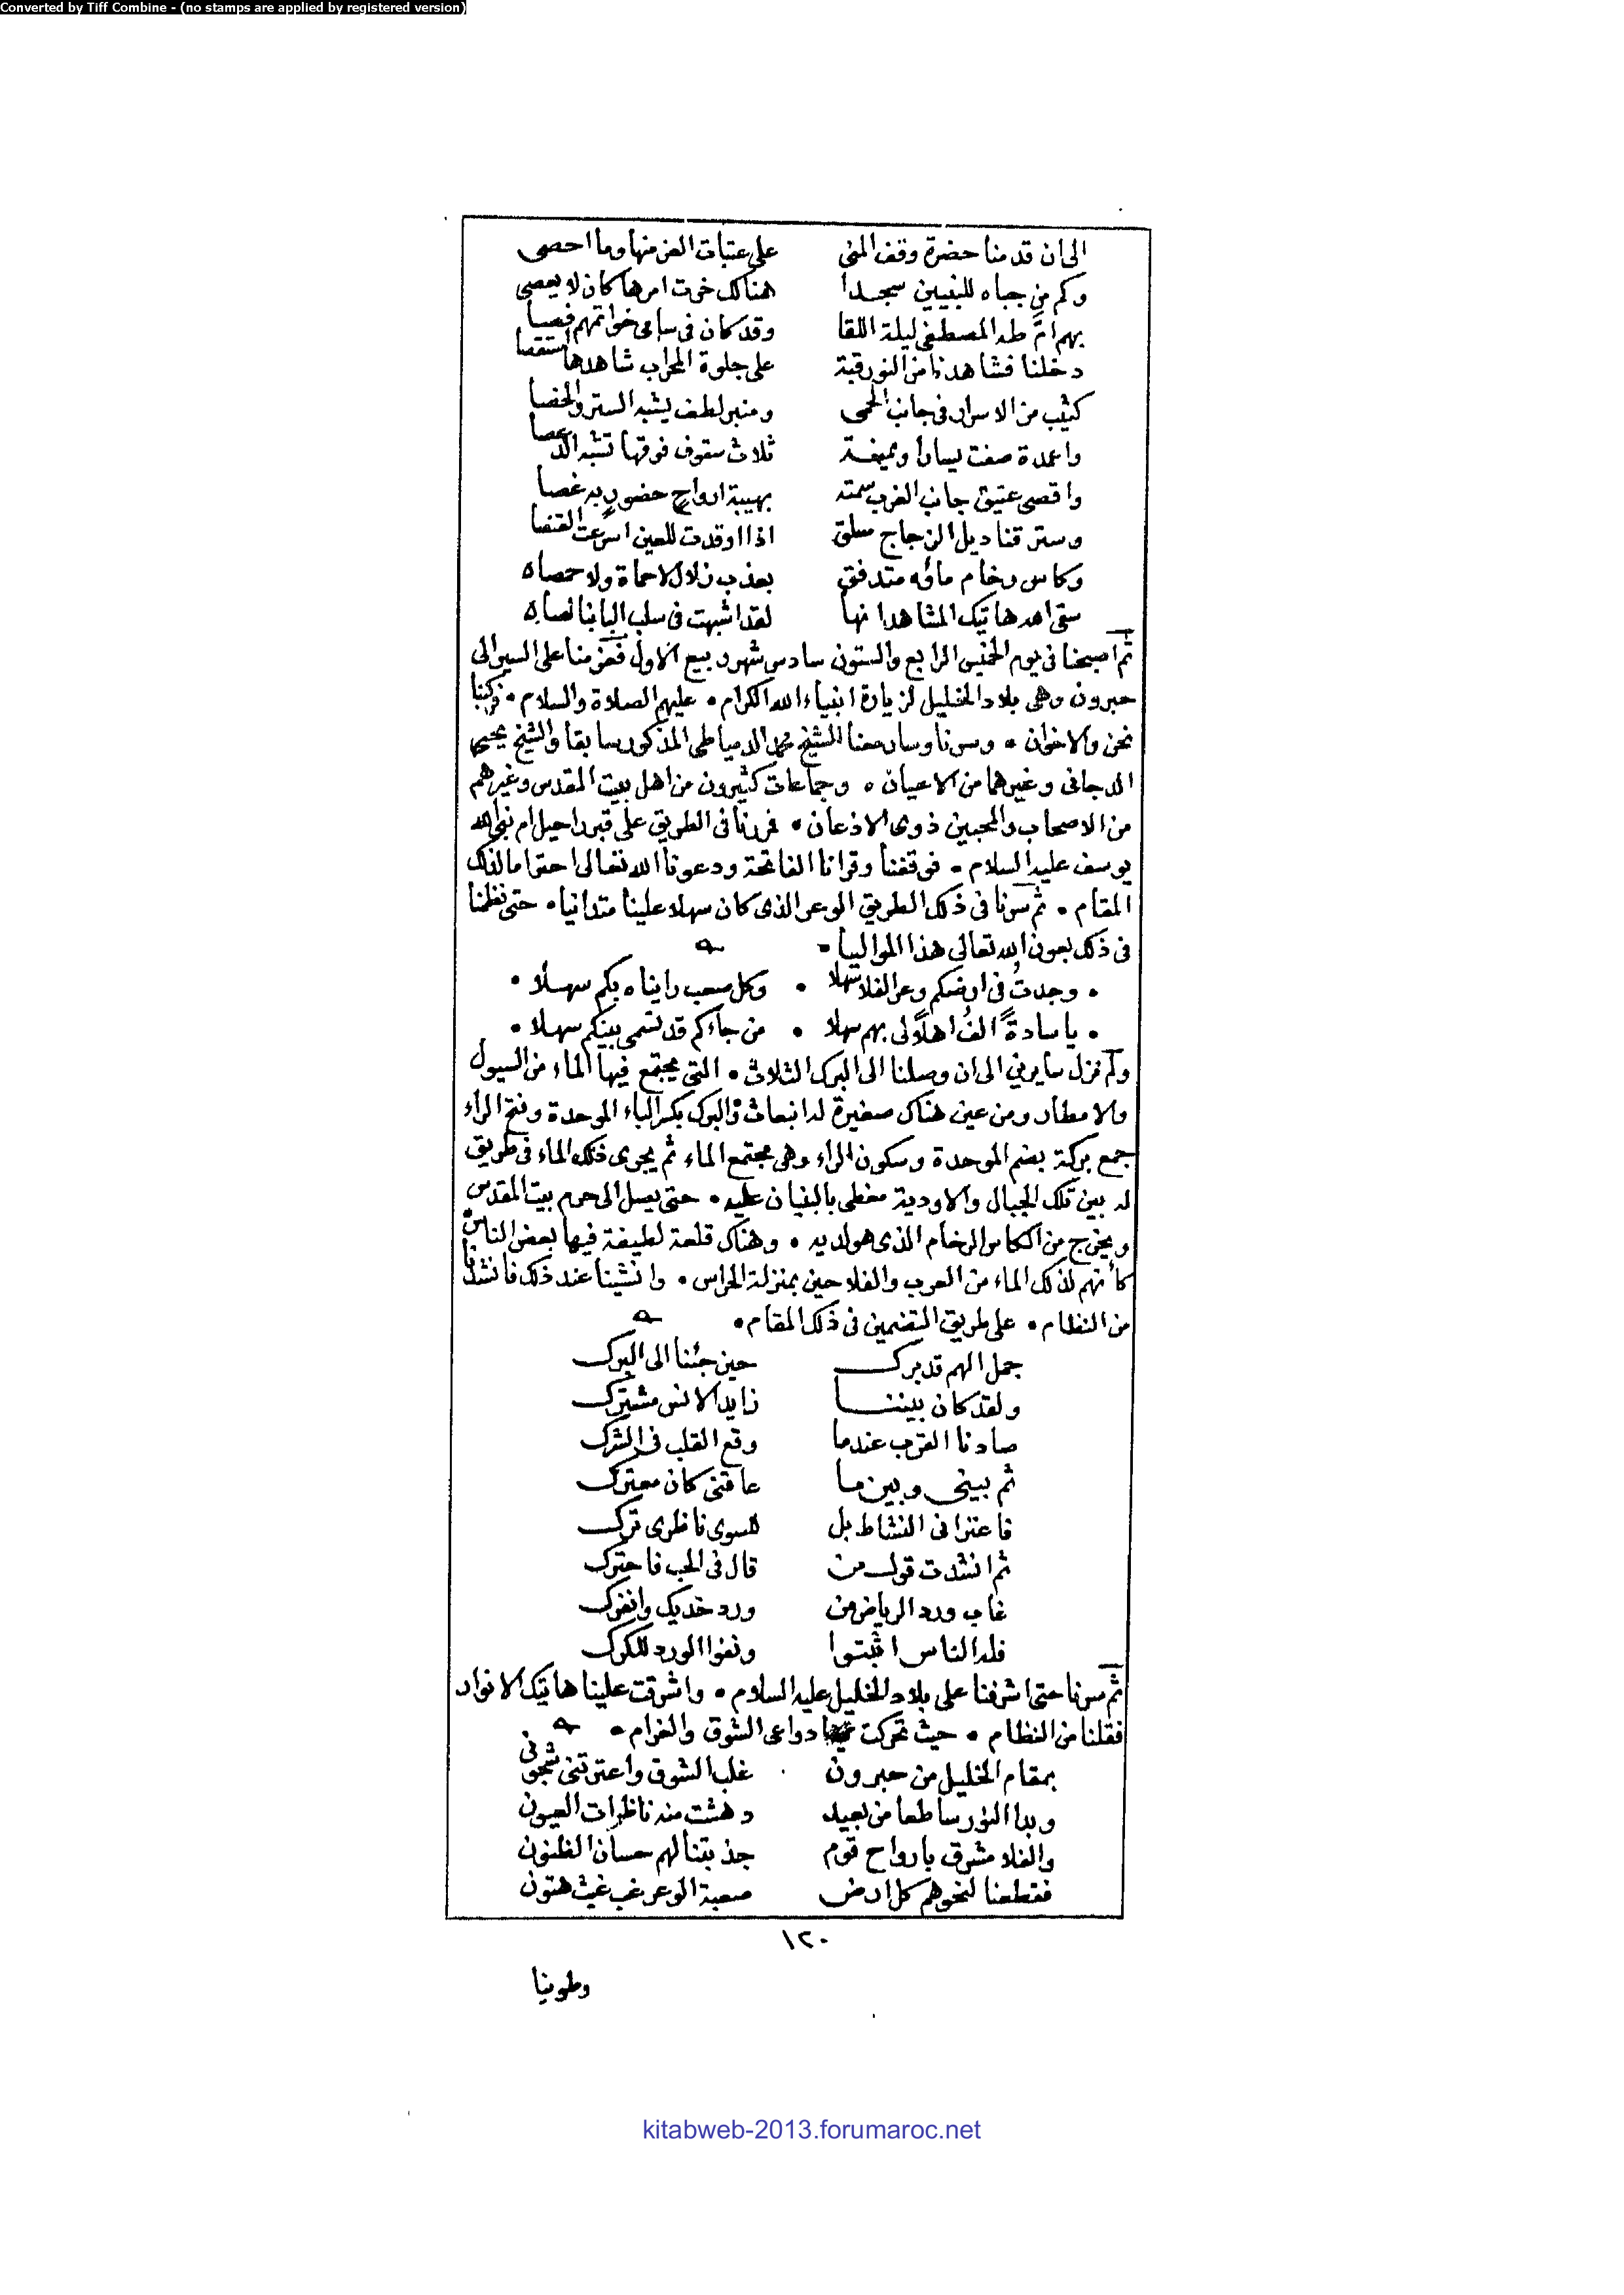 Converted by Tiff Combine - (no stamps are applied by registered version)
الى ان قدمنا حضرة وقف المنى على عتبات العز منها وما احصى
وكم من جباه للنبيين سجدا هنالك خرت امرها كان لا يعصى
بهم امّ طه المصطفى ليلة اللقا وقد كان فى سامى خواتمهم فصا
دخلنا فشاهدنا من النور قبة على جلوة المحراب شاهدها استقصا
كثيب من الاسرار فى جانب الحمى ومنبر لطف يشبه الستر والخصا
واعمدة صفت يسارا ويمنة ثلاث سقوف فوقها تشبه الدعصا
واقصى عتيق جانب الغرب سمته بهيبة ارواحٍ حضورٍ به غصا
وستر قناديل الزجاج معلق اذا اوقدت للعين اسرعت القنصا
وكاس رخام مائه متدفق بعذب زلال لا حماة ولا حمصاه
سقى الله هاتيك المشاهد انها لقد اشبهت فى سلب البابنا لصاه
ثم اصبحنا فى يوم الخميس الرابع والستون سادس شهر ربيع الاول فعزمنا على السير الى
حبرون وهى بلاد الخليل لزيارة انبياء الله الكرام • عليهم الصلاة والسلام • فركبنا
نحن والاخوان • وسرنا وسار معنا الشيخ محمد الدمياطى المذكور سابقا والشيخ يحيى
الدجانى وغيرهما من الاعيان • وجماعات كثيرون من اهل بيت المقدس وغيرهم
من الاصحاب والمحبين ذوى الاذعان • فمررنا فى الطريق على قبر راحيل ام نبى الله
يوسف عليه السلام • فوقفنا وقرانا الفاتحة ودعونا الله تعالى احتراما لذلك
المقام • ثم سرنا فى ذلك الطريق الوعر الذى كان سهلا علينا متدانيا • حتى نظمنا
فى ذلك بعون الله تعالى هذا المواليا •
• وجدتُ فى ارضكم وعر الفلا سهلا • وكل صعب راينا • بكم سهلا •
• يا سادةً الفُ اهلاً لى بهم سهلا • من جاءكم قد تسمى بينكم سهلا •
ولم نزل سايرين الى ان وصلنا الى البرك الثلاث • التى يجتمع فيها الماء من السيول
والامطار ومن عين هناك صغيرة لها انبعاث والبرك بكسر الباء الموحدة وفتح الراء
جمع بركة بضم الموحدة وسكون الراء وهى مجتمع الماء ثم يجرى ذلك الماء فى طريق
له بين تلك الجبال والاودية مغطى بالبنيان عليه • حتى يصل الى حرم بيت المقدس
ويخرج من الكاس الرخام الذى هو لديه • وهناك قلعة لطيفة فيها بعض الناس
كأنهم لذلك الماء من العرب والفلاحين بمنزلة الحراس • وانشينا عند ذلك فانشدنا
من النظام • على طريق التضمين فى ذلك المقام •
جمل الهم قد برك حين جئنا الى البرك
ولقد كان بيننا زايد الانس مشترك
صادنا القرب عندما وقع القلب فى الشرك
ثم بينى وبين ما عاقنى كان معترك
فاعترانى النشاط بل للسوى ناظرى ترك
ثم انشدت قول من قال فى الحب فاحترك
غاب ورد الرياض من ورد خديك وانفرك
فله الناس اثبتوا ونفوا الورد للكرك
ثم سرنا حتى اشرفنا على بلاد الخليل عليه السلام • واشرقت علينا هاتيك الانوار
فقلنا من النظام • حيث تحركت دواعى الشوق والغرام •
بمقام الخليل من حبرون غلب الشوق واعترتنى شجونى
وبدا النور ساطعا من بعيد دهشت منه ناظرات العيون
والفلا مشرق بارواح قوم جذبتنا لهم حسان الظنون
فقطعنا لنحوهم كل ارض صعبة الوعر غب غيث هتون
١٢٠
وطوينا
kitabweb-2013.forumaroc.net